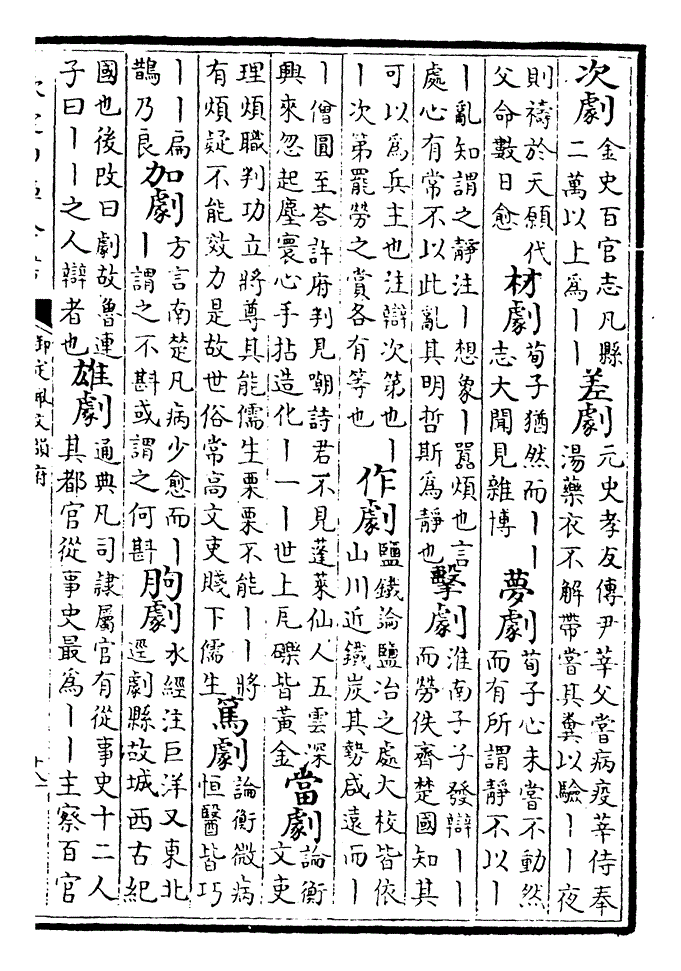 次劇
金史百官志凡縣
二萬以上爲丨丨
差劇
元史孝友傳尹莘父嘗病疫莘侍奉
湯藥衣不解帶嘗其糞以驗丨丨夜
則禱於天願代
父命數日愈
材劇
荀子猶然而丨丨
志大聞見雜博
夢劇
荀子心未嘗不動然
而有所謂靜不以丨
丨亂知謂之靜注丨想象丨囂煩也言
處心有常不以此亂其明哲斯爲靜也
擊劇
淮南子子發辯丨丨
而勞佚齊楚國知其
可以爲兵主也注辯次第也丨
丨次第罷勞之賞各有等也
作劇
鹽鐵論鹽冶之處大校皆依
山川近鐵炭其勢咸遠而丨
丨僧圓至荅許府判見嘲詩君不見蓬萊仙人五雲深
興來忽起塵寰心手拈造化丨一丨世上瓦礫皆黃金
當劇
論衡
文吏
理煩職判功立將尊其能儒生栗栗不能丨丨將
有煩疑不能效力是故世俗常高文吏賤下儒生
篤劇
論衡微病
恒醫皆巧
丨丨扁
鵲乃良
加劇
方言南楚凡病少愈而丨
丨謂之不斟或謂之何斟
朐劇
水經注巨洋又東北
逕劇縣故城西古紀
國也後改曰劇故魯連
子曰丨丨之人辯者也
雄劇
通典凡司隸屬官有從事史十二人
其都官從事史最爲丨丨主察百官
御定佩文韻府